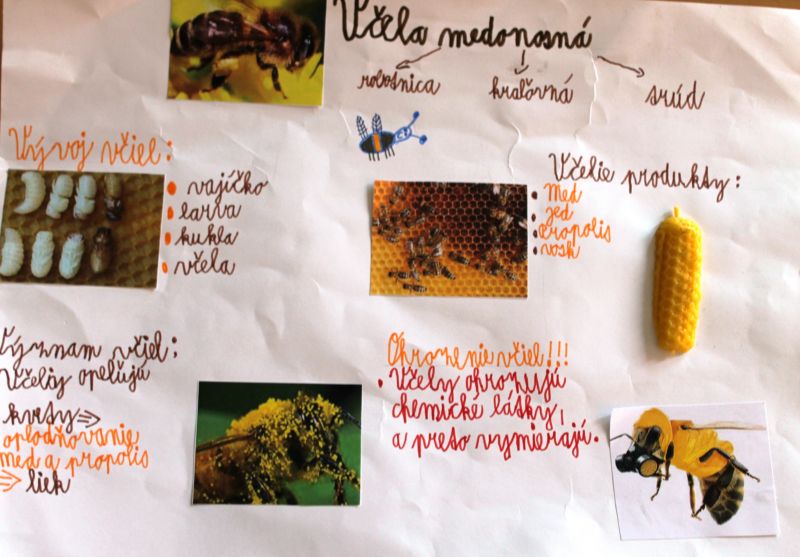 Včela medonosná
robotnica kraľovná srúd
Vývoj včiel:
vajíčko
larva
kukla
včela
Včelie produkty:
Med
jed
propolis
vosk
Význam včiel:
Včeliy opeľujú
kvety⇒
oplodňovanie
med a propolis
⇒ liek
Ohrozenie včiel!!!
Včely ohrozujú
chemické látky,
a preto vymierajú.